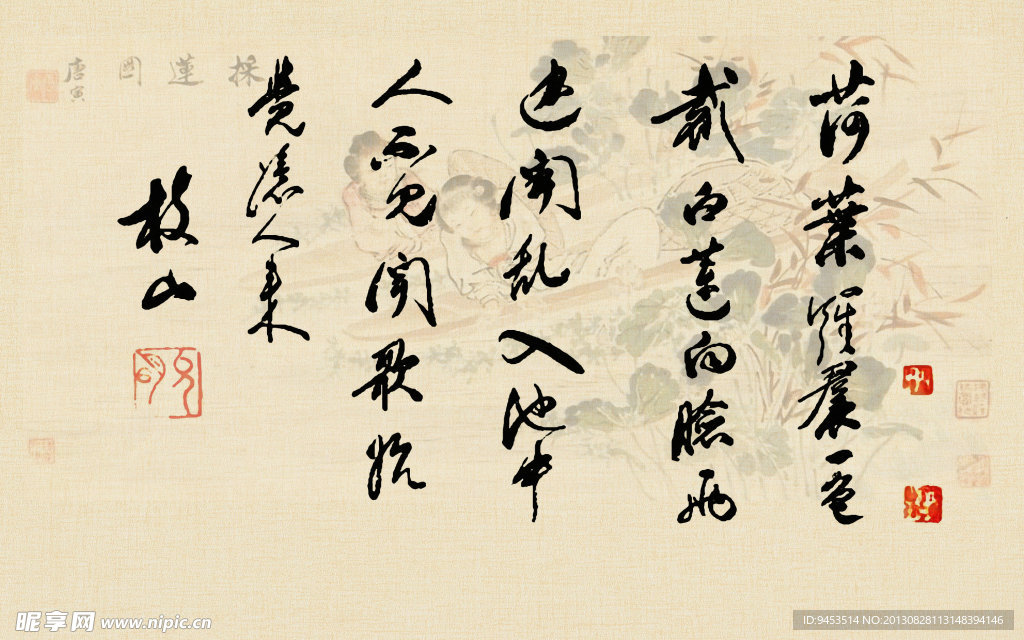 荷葉羅裠一色
裁白蓮向臉兩
边開乱入池中
人不見聞歌始
覺人来
枝山
採蓮圖
唐寅
昵享网 www.nipic.cn
ID:9453514 NO:20130828113148394146